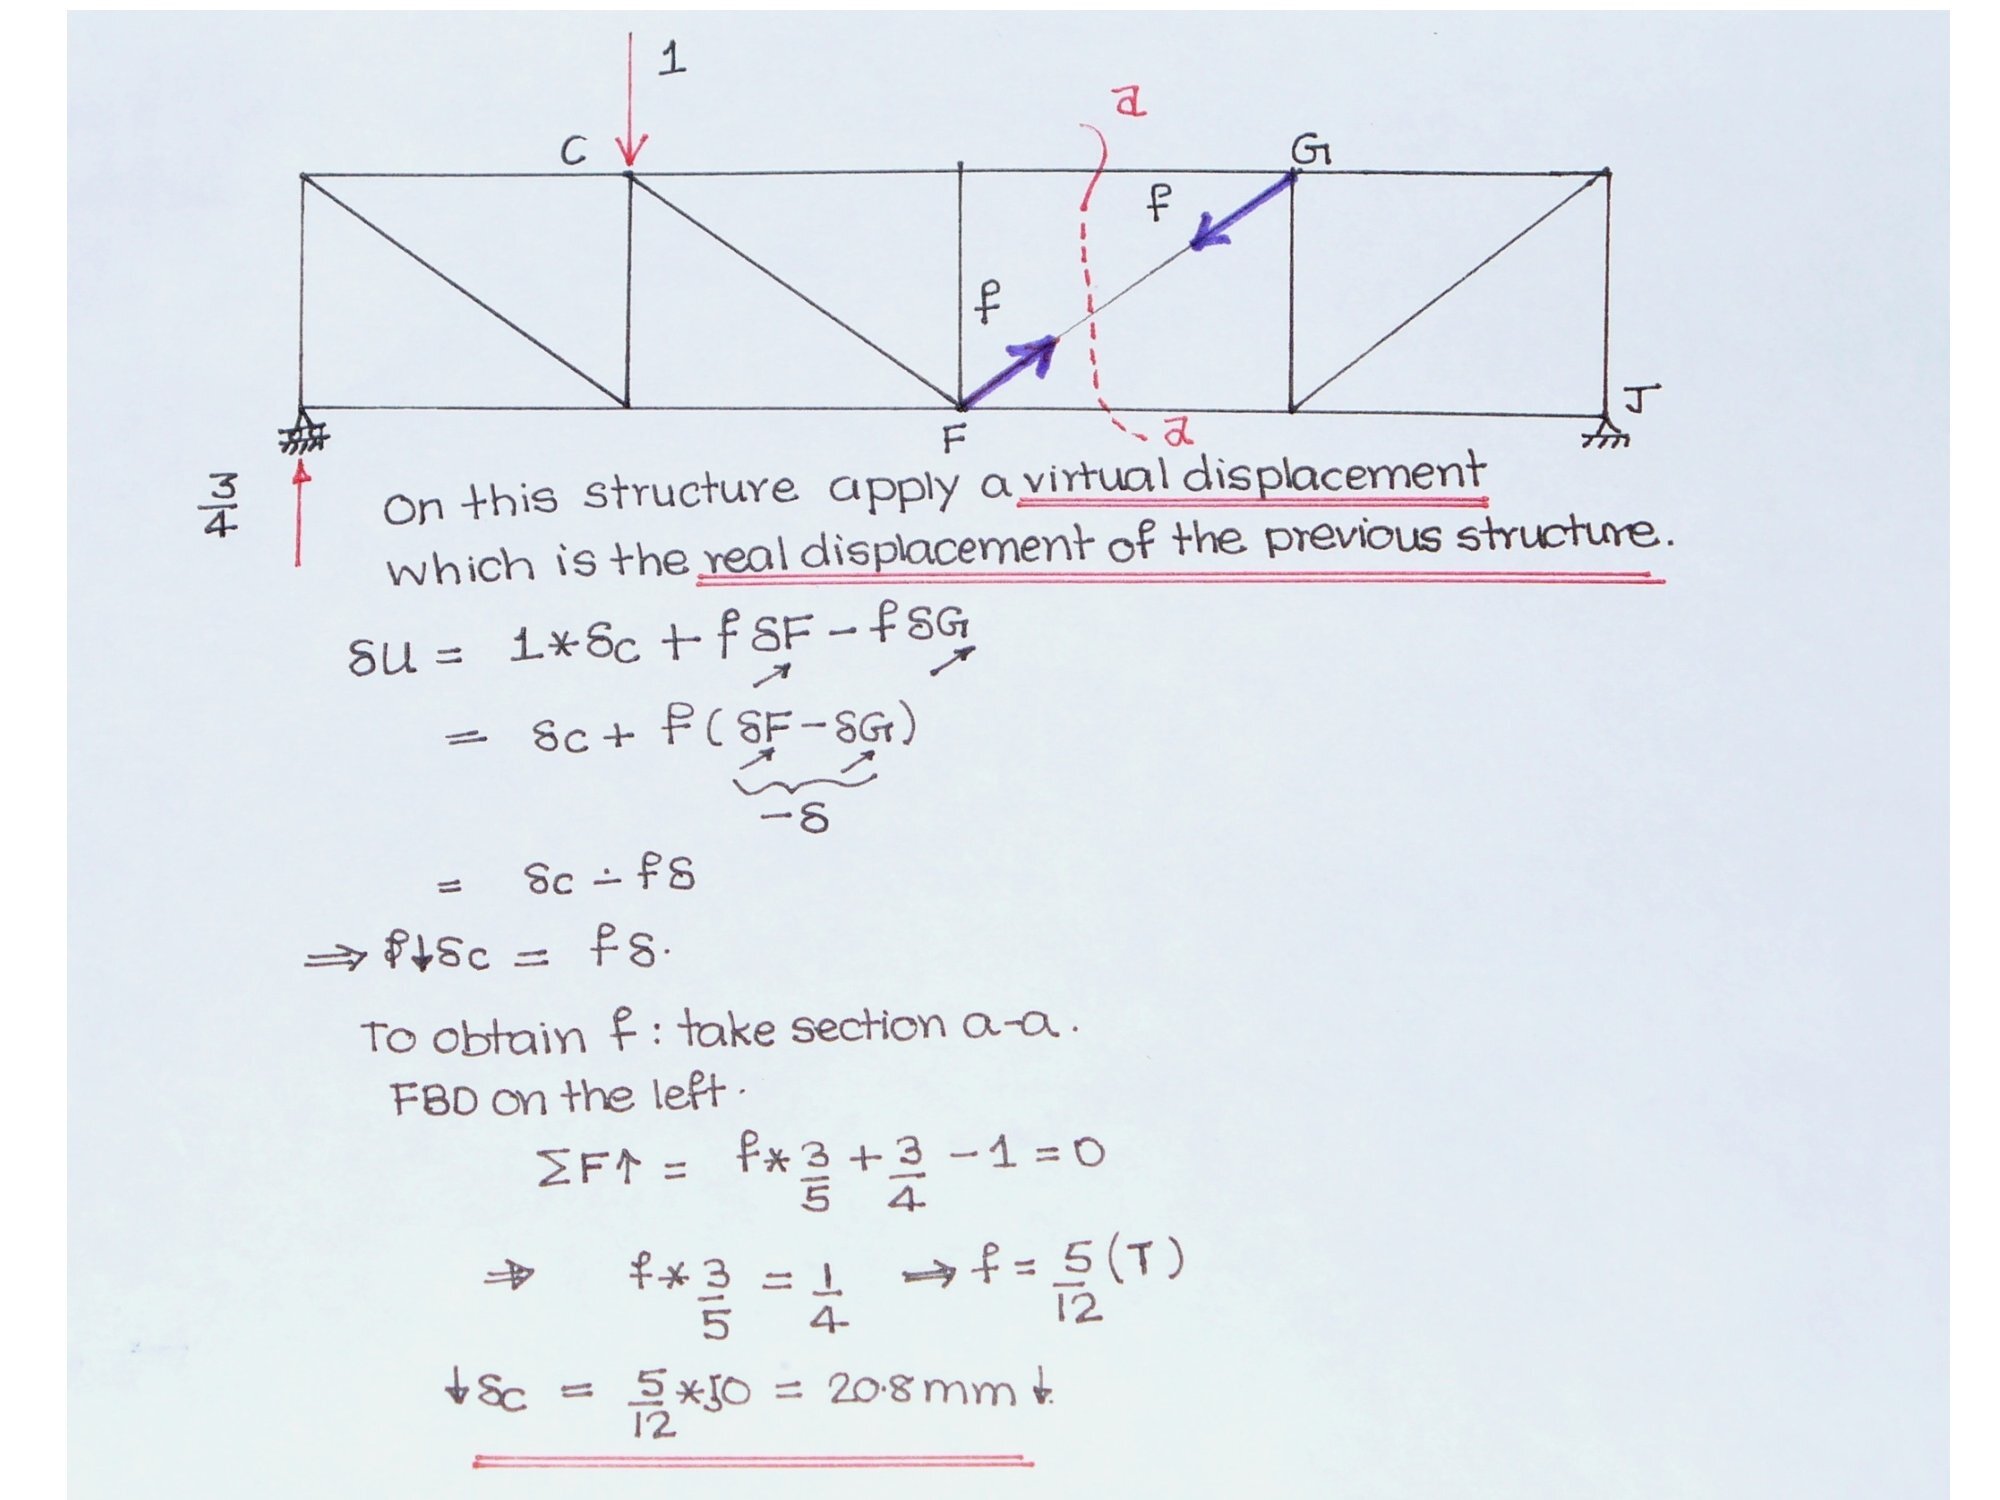 1
a
C
G
f
f
J
F
a
3/4
On this structure apply a virtual displacement
which is the real displacement of the previous structure.
δU = 1*δC + fδF - fδG
= δC + f(δF - δG)
-δ
= δC - fδ
⇒ ↓δC = fδ.
To obtain f: take section a-a.
FBD on the left.
ΣF↑ = f*3/5 + 3/4 - 1 = 0
⇒ f*3/5 = 1/4 ⇒ f = 5/12 (T)
↓δC = 5/12*50 = 20.8mm↓.